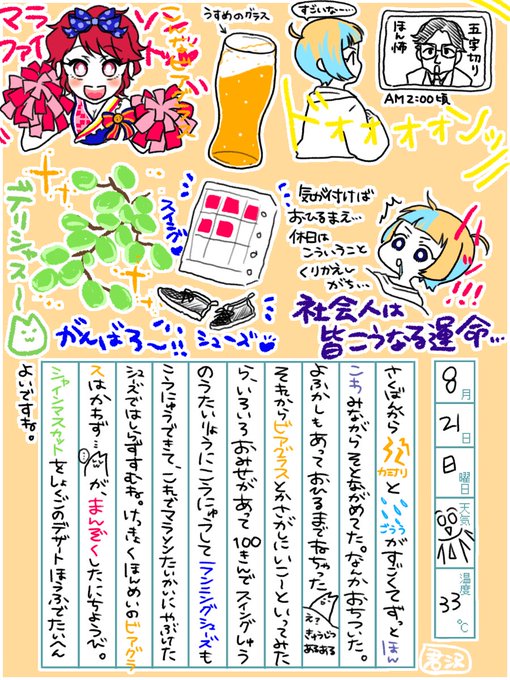 マラソン
ファイト
うすめのグラス
すごいな~…
五字切り
ほん怖
AM2:00頃
ドオォオオンッ
デリシャス~
スイング
シューズ
がんばろ~!!
気が付けば
おひるまえ…
休日は
こういうこと
くりかえし
がち…
!!!
社会人は
皆こうなる運命…
8月
21日
日曜日
天気
温度
33℃
君沢
さくばんから カミナリ と ごうう がすごくてずっとほん
こわみながらそとながめてた。なんかおちついた。
よふかしもあっておひるまでねちゃった
え?
きゅうじつ
あるある
それからビアグラスとかさがしにいこーといってみた
ら、いろいろおみせがあって100きんでスイングしゅう
のうたいりょうにこうにゅうしてランニングシューズも
こうにゅうできて、これでマラソンたいかいにやぶけた
シューズではしらずすむね。けっきょくほんめいのビアグラ
スはかわず…が、まんぞくしたにちようび。
シャインマスカットをしょくごのデザートほうふでたいへん
よいですね。